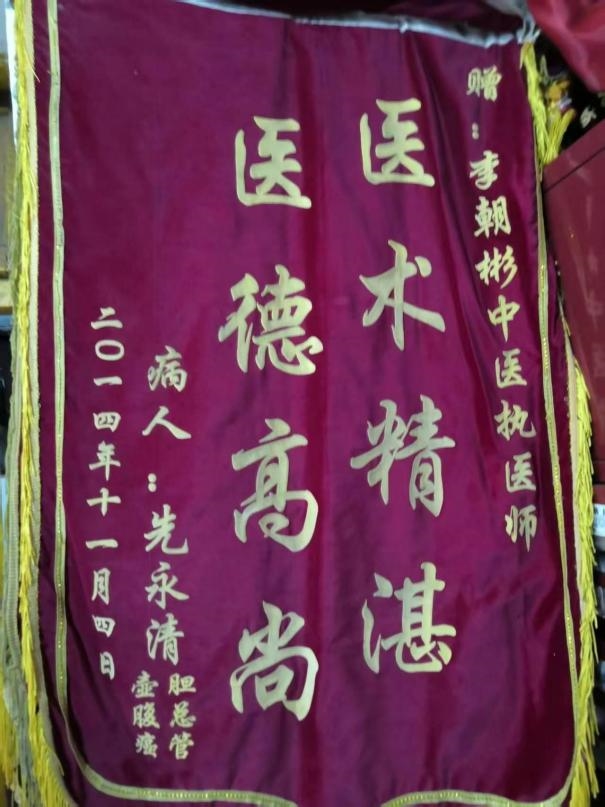 赠：李朝彬中医执医师
医术精湛
医德高尚
病人：先永清
胆总管
壶腹癌
二〇一四年十一月四日